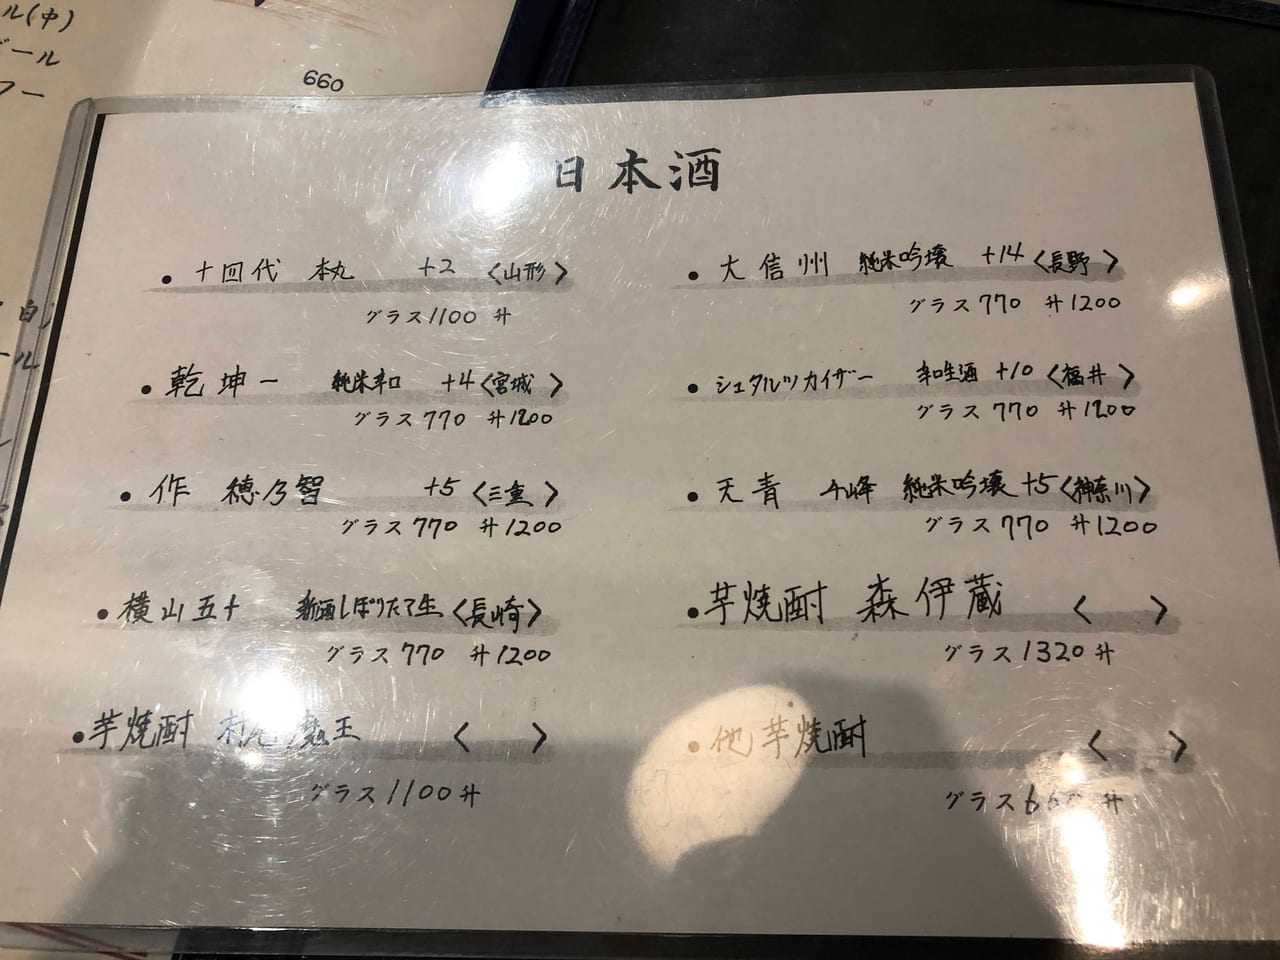 ル(中)
ビール
フー
660
日本酒
・十四代 本丸 +2 〈山形〉
グラス1100 升
・乾坤一 純米辛口 +4〈宮城〉
グラス770 升1200
・作 穂乃智 +5 〈三重〉
グラス770 升1200
・横山五十 新酒しぼりたて生〈長崎〉
グラス770 升1200
・芋焼酎 魔王 〈 〉
グラス1100升
・大信州 純米吟壌 +14〈長野〉
グラス770 升1200
・シュタルツカイザー 辛口生酒 +10〈福井〉
グラス770 升1200
・天青 千峰 純米吟壌+5〈神奈川〉
グラス770 升1200
・芋焼酎 森伊蔵 〈 〉
グラス1320升
・他芋焼酎 〈 〉
グラス660 升